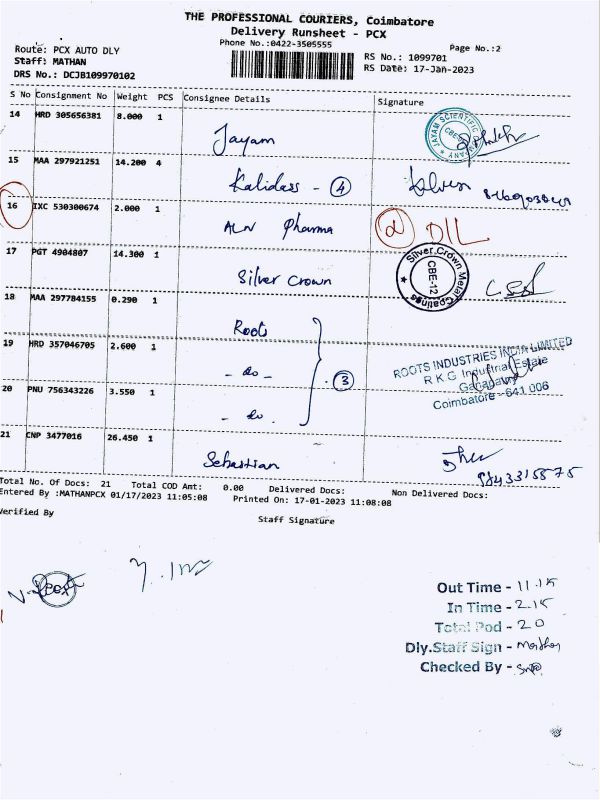 THE PROFESSIONAL COURIERS, Coimbatore
Delivery Runsheet - PCX
Phone No.:0422-3505555
Page No.:2
Route: PCX AUTO DLY
Staff: MATHAN
DRS No.: DCJB109970102
RS No.: 1099701
RS Date: 17-Jan-2023
S No Consignment No Weight PCS Consignee Details Signature
14 HRD 305656381 8.000 1
Jayam
JAYAM SCIENTIFIC COMPANY
CBE
15 MAA 297921251 14.200 4
Kalidass - 4
16 IXC 530300674 2.000 1
ALN Pharma
17 PGT 4904807 14.300 1
Silver Crown
Silver Crown Metal Coatings
CBE-12
18 MAA 297784155 0.290 1
Roots
19 HRD 357046705 2.600 1
- do -
3
ROOTS INDUSTRIES INDIA LIMITED
R K G Industrial Estate
Ganapathy
Coimbatore - 641 006
20 PNU 756343226 3.550 1
- do.
21 CNP 3477016 26.450 1
Sebastian
9843315575
Total No. Of Docs: 21 Total COD Amt: 0.00 Delivered Docs: Non Delivered Docs:
Entered By :MATHANPCX 01/17/2023 11:05:08 Printed On: 17-01-2023 11:08:08
Verified By
Staff Signature
PCX
Out Time - 11.15
In Time - 2.15
Total Pod - 20
Dly.Staff Sign - Mathan
Checked By -